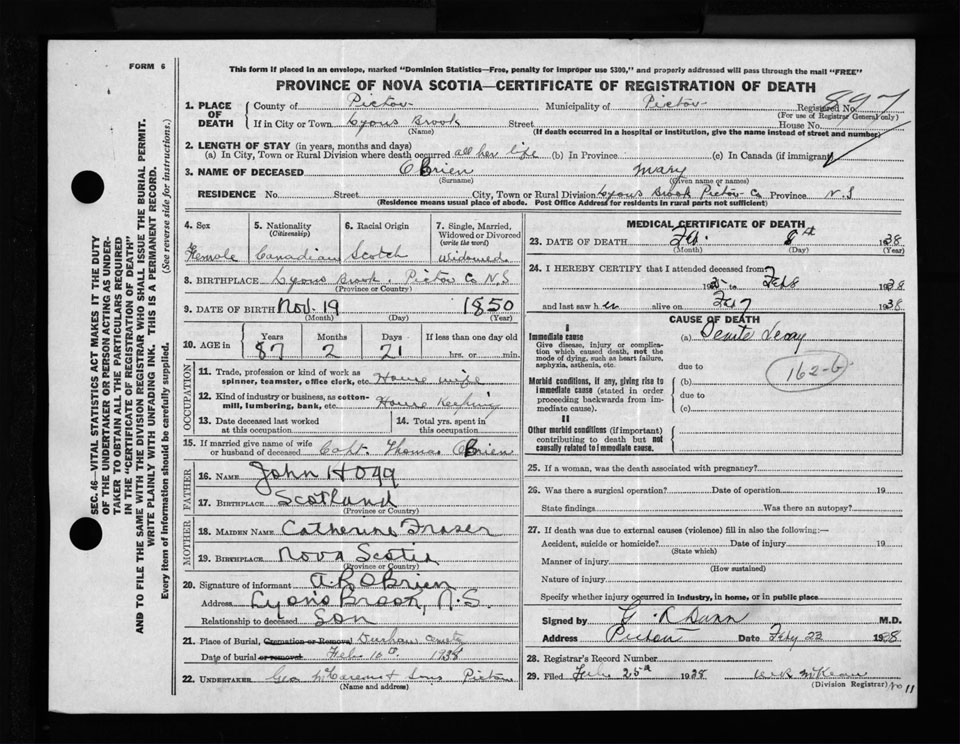 FORM 6
This form if placed in an envelope, marked "Dominion Statistics—Free, penalty for improper use $300," and properly addressed will pass through the mail "FREE"
PROVINCE OF NOVA SCOTIA—CERTIFICATE OF REGISTRATION OF DEATH
SEC. 46—VITAL STATISTICS ACT MAKES IT THE DUTY
OF THE UNDERTAKER OR PERSON ACTING AS UNDER-
TAKER TO OBTAIN ALL THE PARTICULARS REQUIRED
IN THE "CERTIFICATE OF REGISTRATION OF DEATH"
AND TO FILE THE SAME WITH THE DIVISION REGISTRAR WHO SHALL ISSUE THE BURIAL PERMIT.
WRITE PLAINLY WITH UNFADING INK. THIS IS A PERMANENT RECORD.
Every item of information should be carefully supplied. (See reverse side for instructions.)
1. PLACE OF DEATH County of Pictou Municipality of Pictou Registered No. 897
(For use of Registrar General only)
If in City or Town Lyons Brook Street House No.
(Name) (If death occurred in a hospital or institution, give the name instead of street and number)
2. LENGTH OF STAY (in years, months and days)
(a) In City, Town or Rural Division where death occurred all her life (b) In Province (c) In Canada (if immigrant)
3. NAME OF DECEASED O'Brien Mary
(Surname) (Given name or names)
RESIDENCE No. Street City, Town or Rural Division Lyons Brook Pictou Co Province N.S
(Residence means usual place of abode. Post Office Address for residents in rural parts not sufficient)
4. Sex 5. Nationality (Citizenship) 6. Racial Origin 7. Single, Married, Widowed or Divorced (write the word)
Female Canadian Scotch Widowed
8. BIRTHPLACE Lyons Brook, Pictou Co N.S
(Province or Country)
9. DATE OF BIRTH Nov. 19 1850
(Month) (Day) (Year)
10. AGE in Years Months Days If less than one day old
87 2 21 hrs. or min.
OCCUPATION
11. Trade, profession or kind of work as spinner, teamster, office clerk, etc. House wife
12. Kind of industry or business, as cotton-mill, lumbering, bank, etc. House Keeping
13. Date deceased last worked at this occupation 14. Total yrs. spent in this occupation
15. If married give name of wife or husband of deceased Capt. Thomas O'Brien
FATHER
16. NAME John Hogg
17. BIRTHPLACE Scotland
(Province or Country)
MOTHER
18. MAIDEN NAME Catherine Fraser
19. BIRTHPLACE Nova Scotia
(Province or Country)
20. Signature of informant A.R. O'Brien
Address Lyons Brook, N.S.
Relationship to deceased Son
21. Place of Burial, Cremation or Removal Durham
Date of burial or removal Feb. 10th 1938
22. UNDERTAKER Geo & Sons Pictou
(Name and address)
MEDICAL CERTIFICATE OF DEATH
23. DATE OF DEATH 1938
(Month) (Day) (Year)
24. I HEREBY CERTIFY that I attended deceased from
to Feb 8 1938
and last saw her alive on Feb 7 1938
CAUSE OF DEATH
I
Immediate cause
Give disease, injury or complication which caused death, not the mode of dying, such as heart failure, asphyxia, asthenia, etc.
(a) Senile
due to
162-b
Morbid conditions, if any, giving rise to immediate cause (stated in order proceeding backwards from immediate cause).
(b)
due to
(c)
II
Other morbid conditions (if important) contributing to death but not causally related to immediate cause.
25. If a woman, was the death associated with pregnancy?
26. Was there a surgical operation? Date of operation 19
State findings Was there an autopsy?
27. If death was due to external causes (violence) fill in also the following:—
Accident, suicide or homicide? Date of injury 19
(State which)
Manner of injury
(How sustained)
Nature of injury
Specify whether injury occurred in industry, in home, or in public place
Signed by G. R Dunn M.D.
Address Pictou Date Feby 22 1938
28. Registrar's Record Number
29. Filed 25th 1938
(Division Registrar) No 11